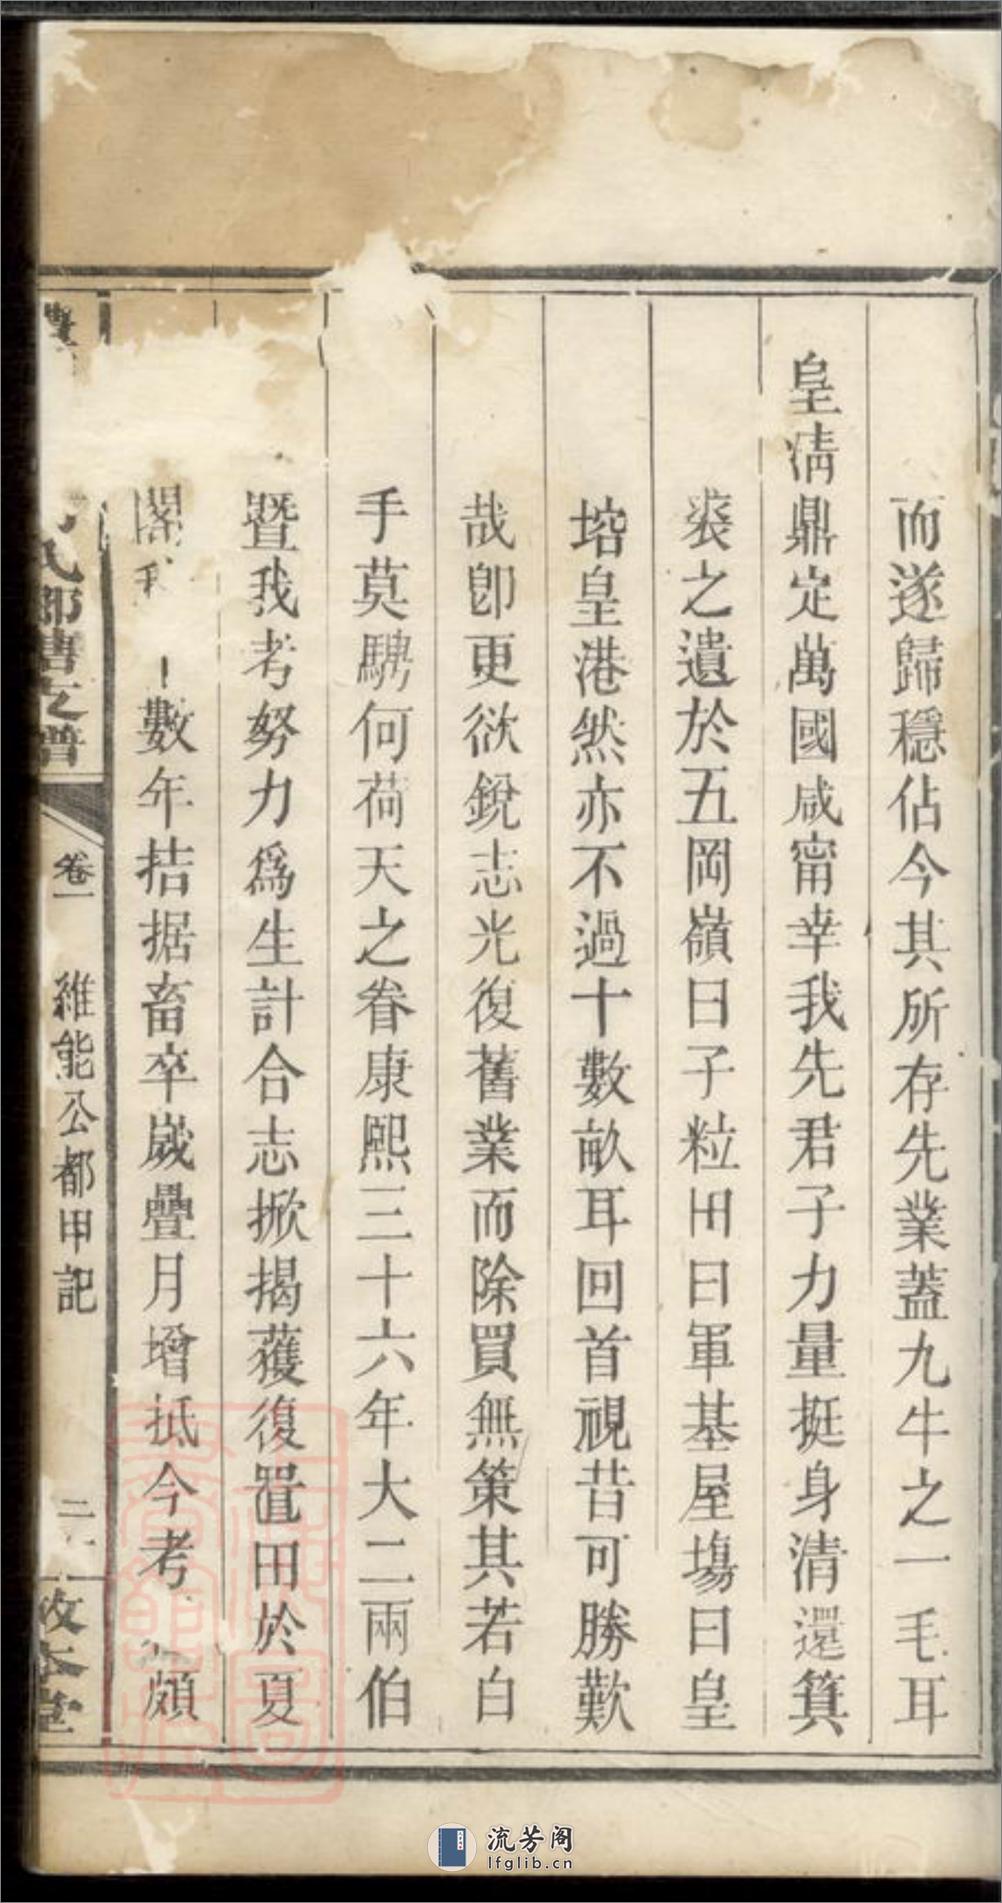 而遂歸穩佔今其所存先業蓋九牛之一毛耳
皇淸鼎定萬國咸甯幸我先君子力量挺身清還箕
裘之遺於五岡嶺曰子粒田曰軍基屋塲曰皇
塔皇港然亦不過十數畝耳回首視昔可勝歎
哉卽更欲銳志光復舊業而除買無策其若白
手莫騁何荷天之眷康熙三十六年大二兩伯
暨我考努力爲生計合志掀揭獲復置田於夏
閣我數年拮据畜卒歲疊月增抵今考頗
氏郎唐支譜
卷一
維能公都甲記
二
敦本堂
流芳阁
lfglib.cn